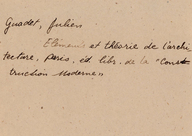 Guadet, Julien
Elements et théorie de l'archi-
tecture, Paris, éd. libr. de la "Cons
truction Moderne"